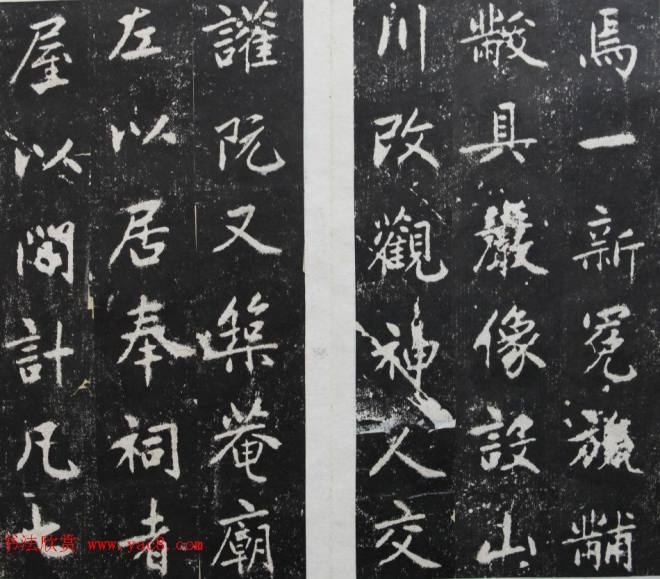 焉一新冕旒黼
黻具嚴像設山
川改觀神人交
讙既又築菴廟
左以居奉祠者
屋以間計凡
书法欣赏 www.yac8.com